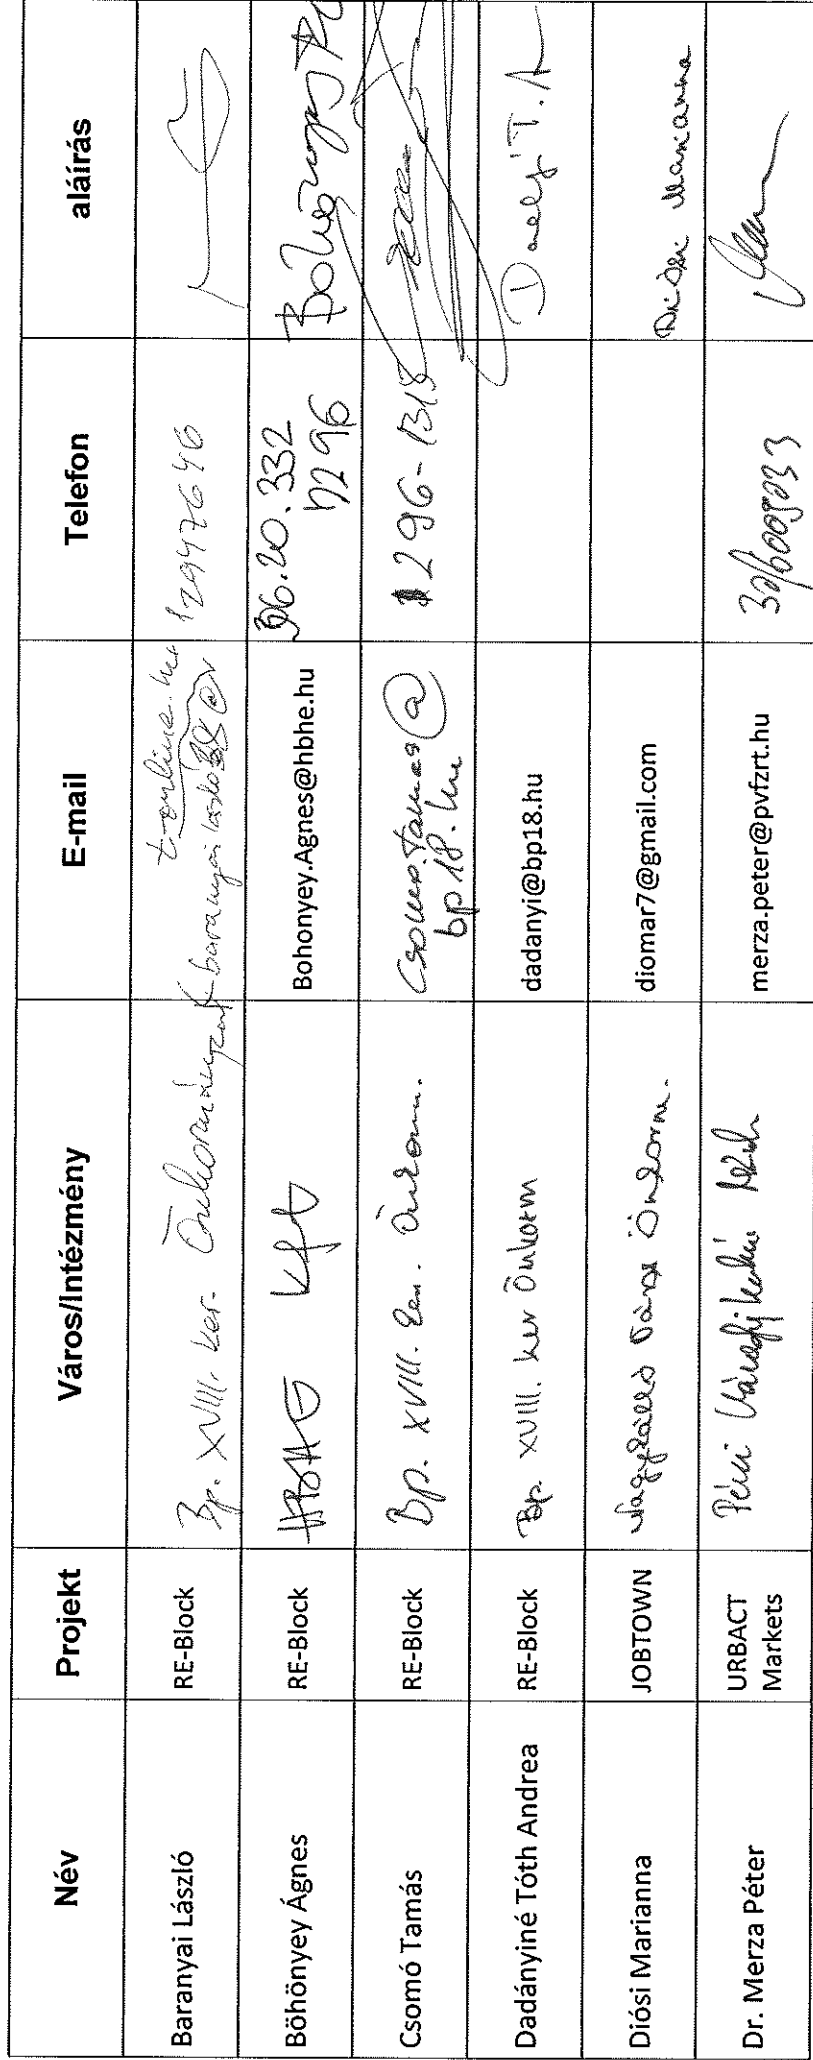 Név Projekt Város/Intézmény E-mail Telefon aláírás
Baranyai László RE-Block Bp. XVIII. ker. Önkormányzat baranyai.laszlo @ t-online.hu 12947646
Böhönyey Ágnes RE-Block HBHE Kft Bohonyey.Agnes@hbhe.hu 36.20.332
7296
Csomó Tamás RE-Block Bp. XVIII. ker. Önkorm. Csomo.tamas@ 1 296-1318
bp18.hu
Dadányiné Tóth Andrea RE-Block Bp. XVIII. ker Önkorm dadanyi@bp18.hu
Diósi Marianna JOBTOWN Nagykálló Város Önkorm. diomar7@gmail.com Diósi Marianna
Dr. Merza Péter URBACT Pécsi merza.peter@pvfzrt.hu
Markets